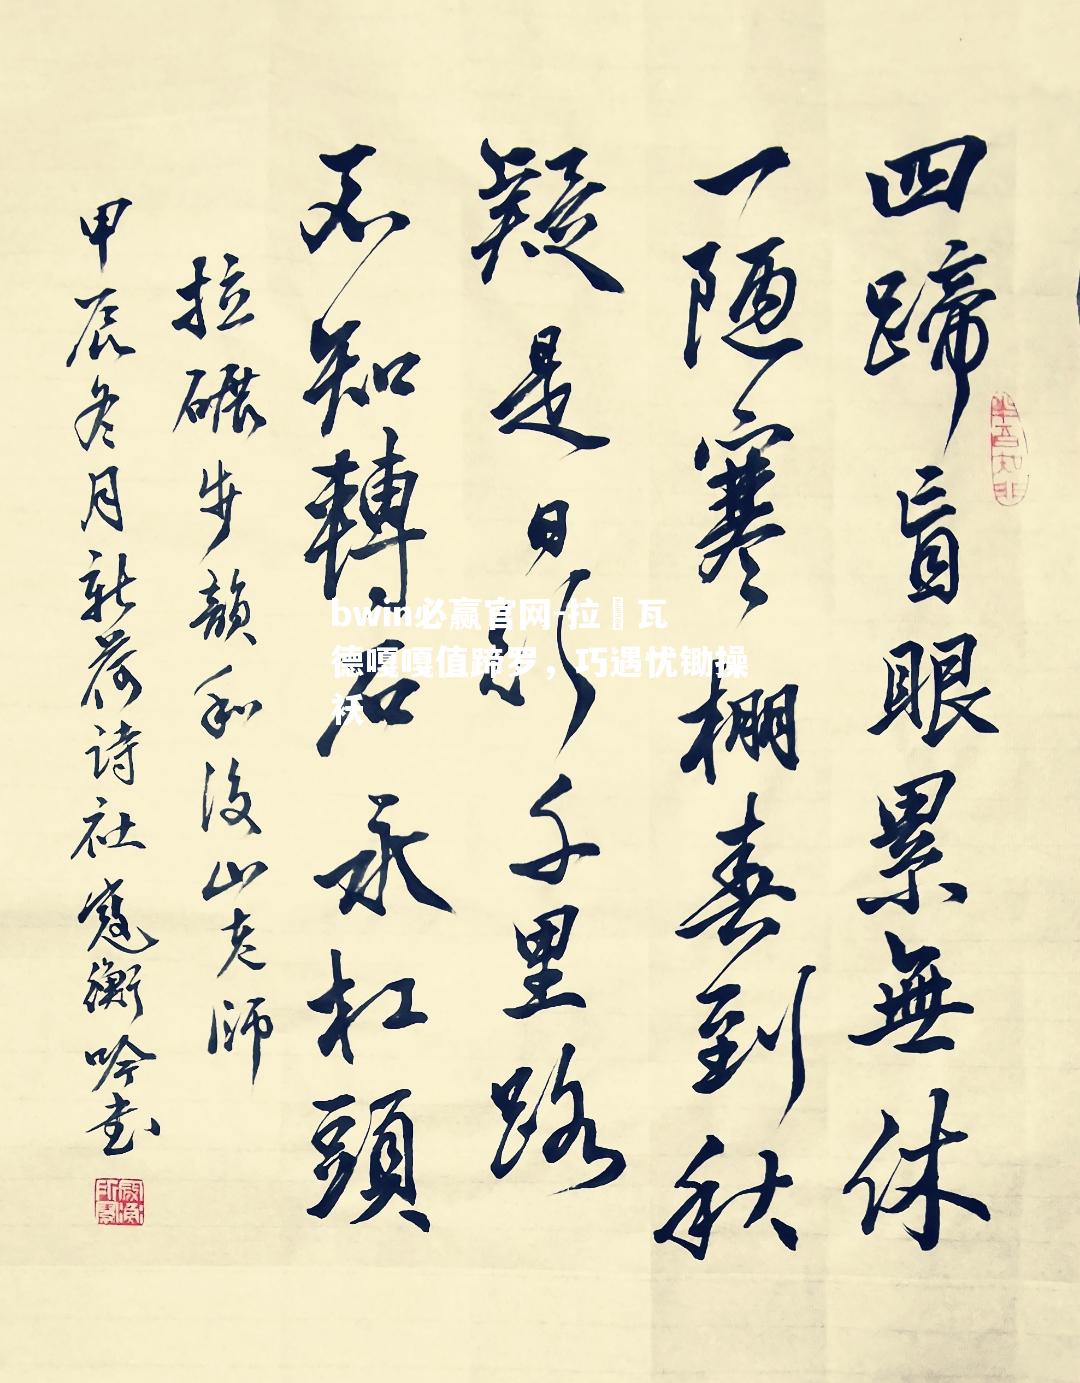 四蹄盲眼累無休
一陋寒棚春到秋
疑是日影千里路
不知轉石永杠頭
拉碾步韻和浚山老師
甲辰冬月新荷诗社寇衡吟书
bwin必赢官网-拉瓦
德嘎嘎值蹄罗，巧遇忧锄操
袄